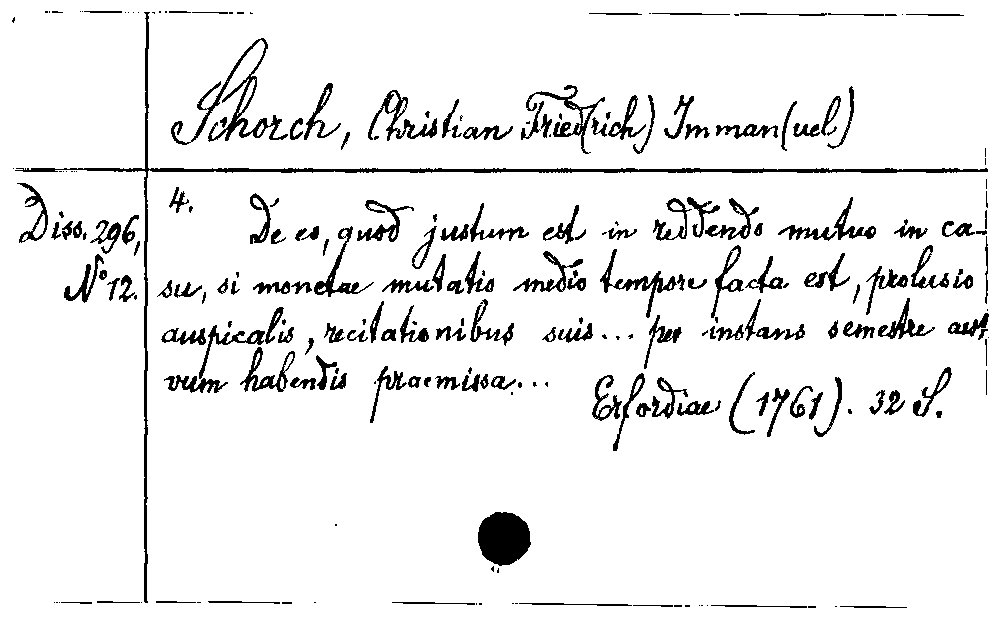 Schorch, Christian Fried(rich) Imman(uel)
Diss. 296,
No 12.
4. De eo, quod justum est in reddendo mutuo in ca-
su, si monetae mutatio medio tempore facta est, prolusio
auspicalis, recitationibus suis... per instans semestre aesti
vum habendis praemissa...
Erfordiae (1761). 32 S.